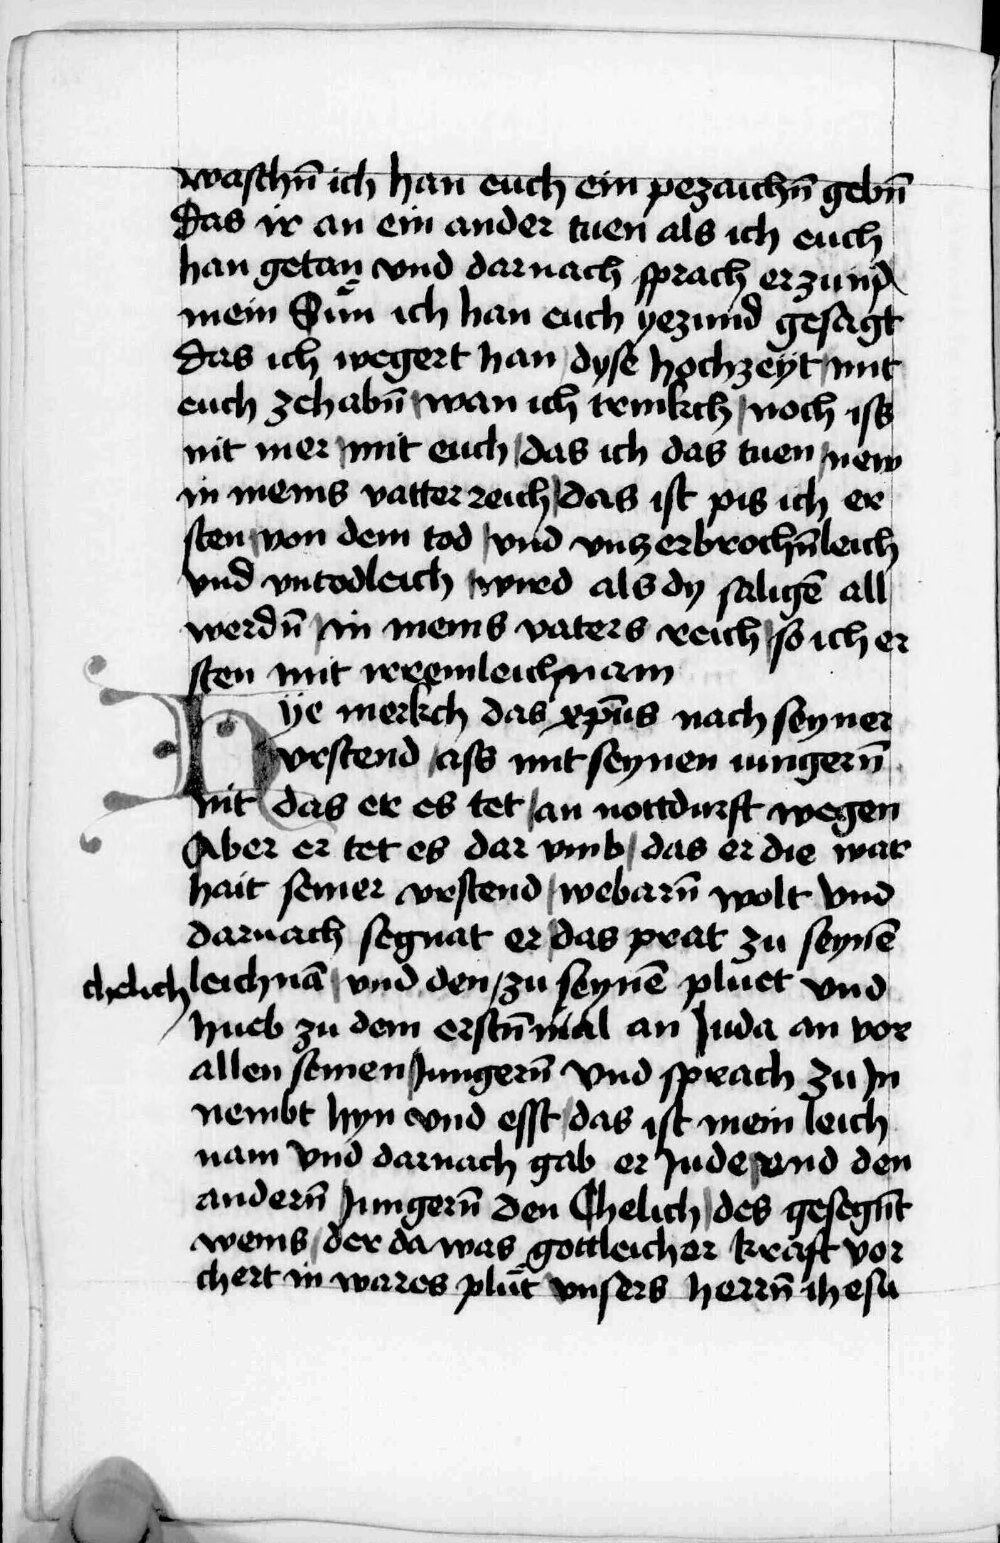 waschn̄ ich han euch ein pezaichn̄ gebn̄
das ir an ein ander tuen als ich euch
han getan vnd darnach sprach er zu in
mein Sun ich han euch yezund gesagt
das ich wegert han dyse hochzeyt mit
euch zehabn̄ wan ich trinkch noch iss
nit mer mit euch das ich das tuen new
in meins vatter reich das ist pis ich er
sten von dem tod vnd vnzerbrochn̄leich
vnd vntodleich wird als dy saligē all
werdn̄ in meins vaters reich so ich er
sten mit irem leichnam
Hye merkch das xp̄us nach seyner
vrstend ass mit seynen iungern̄
nit das er es tet an nottdurft wegen
Aber er tet es dar vmb das er die war
hait seiner vrstend webarn̄ wolt vnd
darnach segnat er das prat zu seynē
leichnā vnd den zu seynē pluet vnd
chelich
hueb zu dem erstn̄ mal an Juda an vor
allen seinen Jungern̄ vnd sprach zu In
nembt hyn vnd esst das ist mein leich
nam vnd darnach gab er Jude vnd den
andern̄ Jungern̄ den Chelich des gesegn̄t
weins der da was gottleicher kraft vor
chert in wares plūt vnsers herrn̄ ihesu